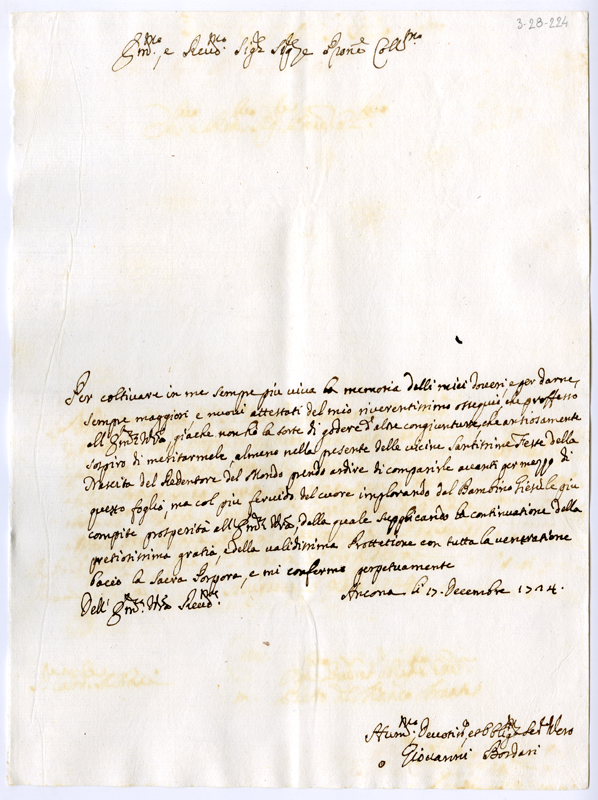 3-28-224
Em.mo, e Reud.mo Sig.r Sig.re Pron.e Coll.mo
Per coltivare in me sempre piu viva la memoria delli miei doveri, e per darne,
sempre maggiori e nuovi attestati del mio riverentissimo ossequio, che professo
all'Em.za V.ra, giache non hò la sorte di godere d'altre congiunture, che antiosamente
sospiro di meritarmele, almeno nella presente delle vicine Santissime Feste della
Nascita del Redentore del Mondo prendo ardire di comparirle avanti per mezzo di
questo foglio, ma col piu fervido del cuore implorando dal Bambino Giesù le piu
compite prosperità all'Em.za V.ra, dalla quale supplicando la continuatione della
pretiosissima gratia, e della validissima Prottetione con tutta la veneratione
bacio la Sacra Porpora, e mi confermo perpetuamente
Dell'Em.za V.ra Reud.ma
Ancona li 17. Decembre 1724.
Hum.mo Devotis.o, et Obblig.mo Ser.e Vero
Giovanni Bordari